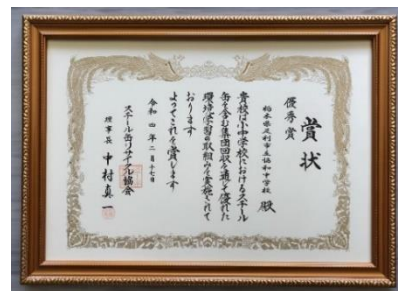 賞状
優秀賞
栃木県足利市立協和中学校 殿
貴校は小中学校におけるスチール
缶を含む集団回収を通して優れた
環境学習の取組みを実施されて
おります
よってこれを賞します
令和四年二月十七日
スチール缶リサイクル協会
理事長 中村真一